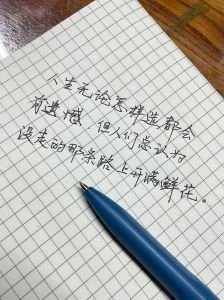 人生无论怎样选都会
有遗憾 但人们总认为
没走的那条路上开满鲜花。